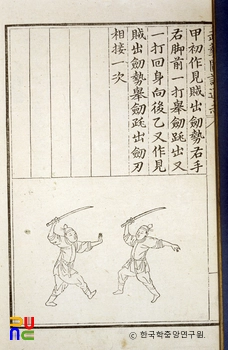 甲初作見賊出劒勢右手
右脚前一打擧劒跳出又
一打回身向後乙又作見
賊出劒勢擧劒跳出劒刃
相接一次
ⓒ 한국학중앙연구원